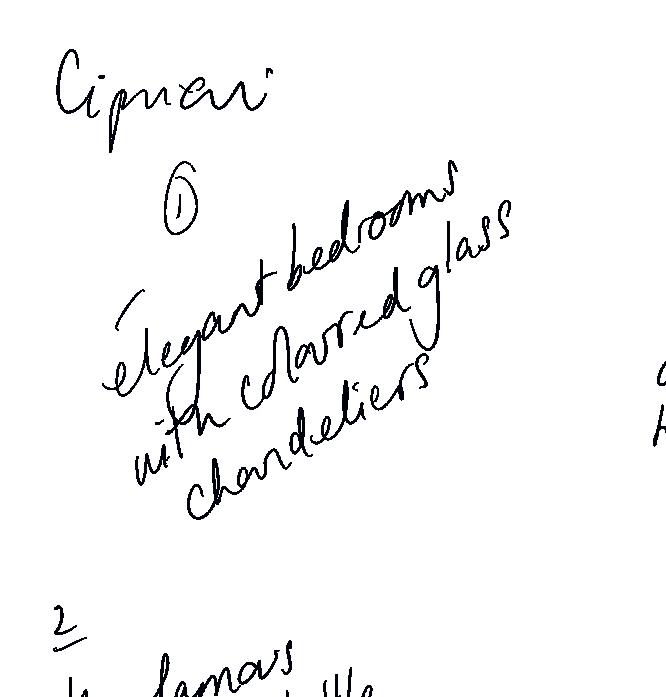 Cipriani
①
élegant bedrooms
with coloured glass
chandeliers
2
famous